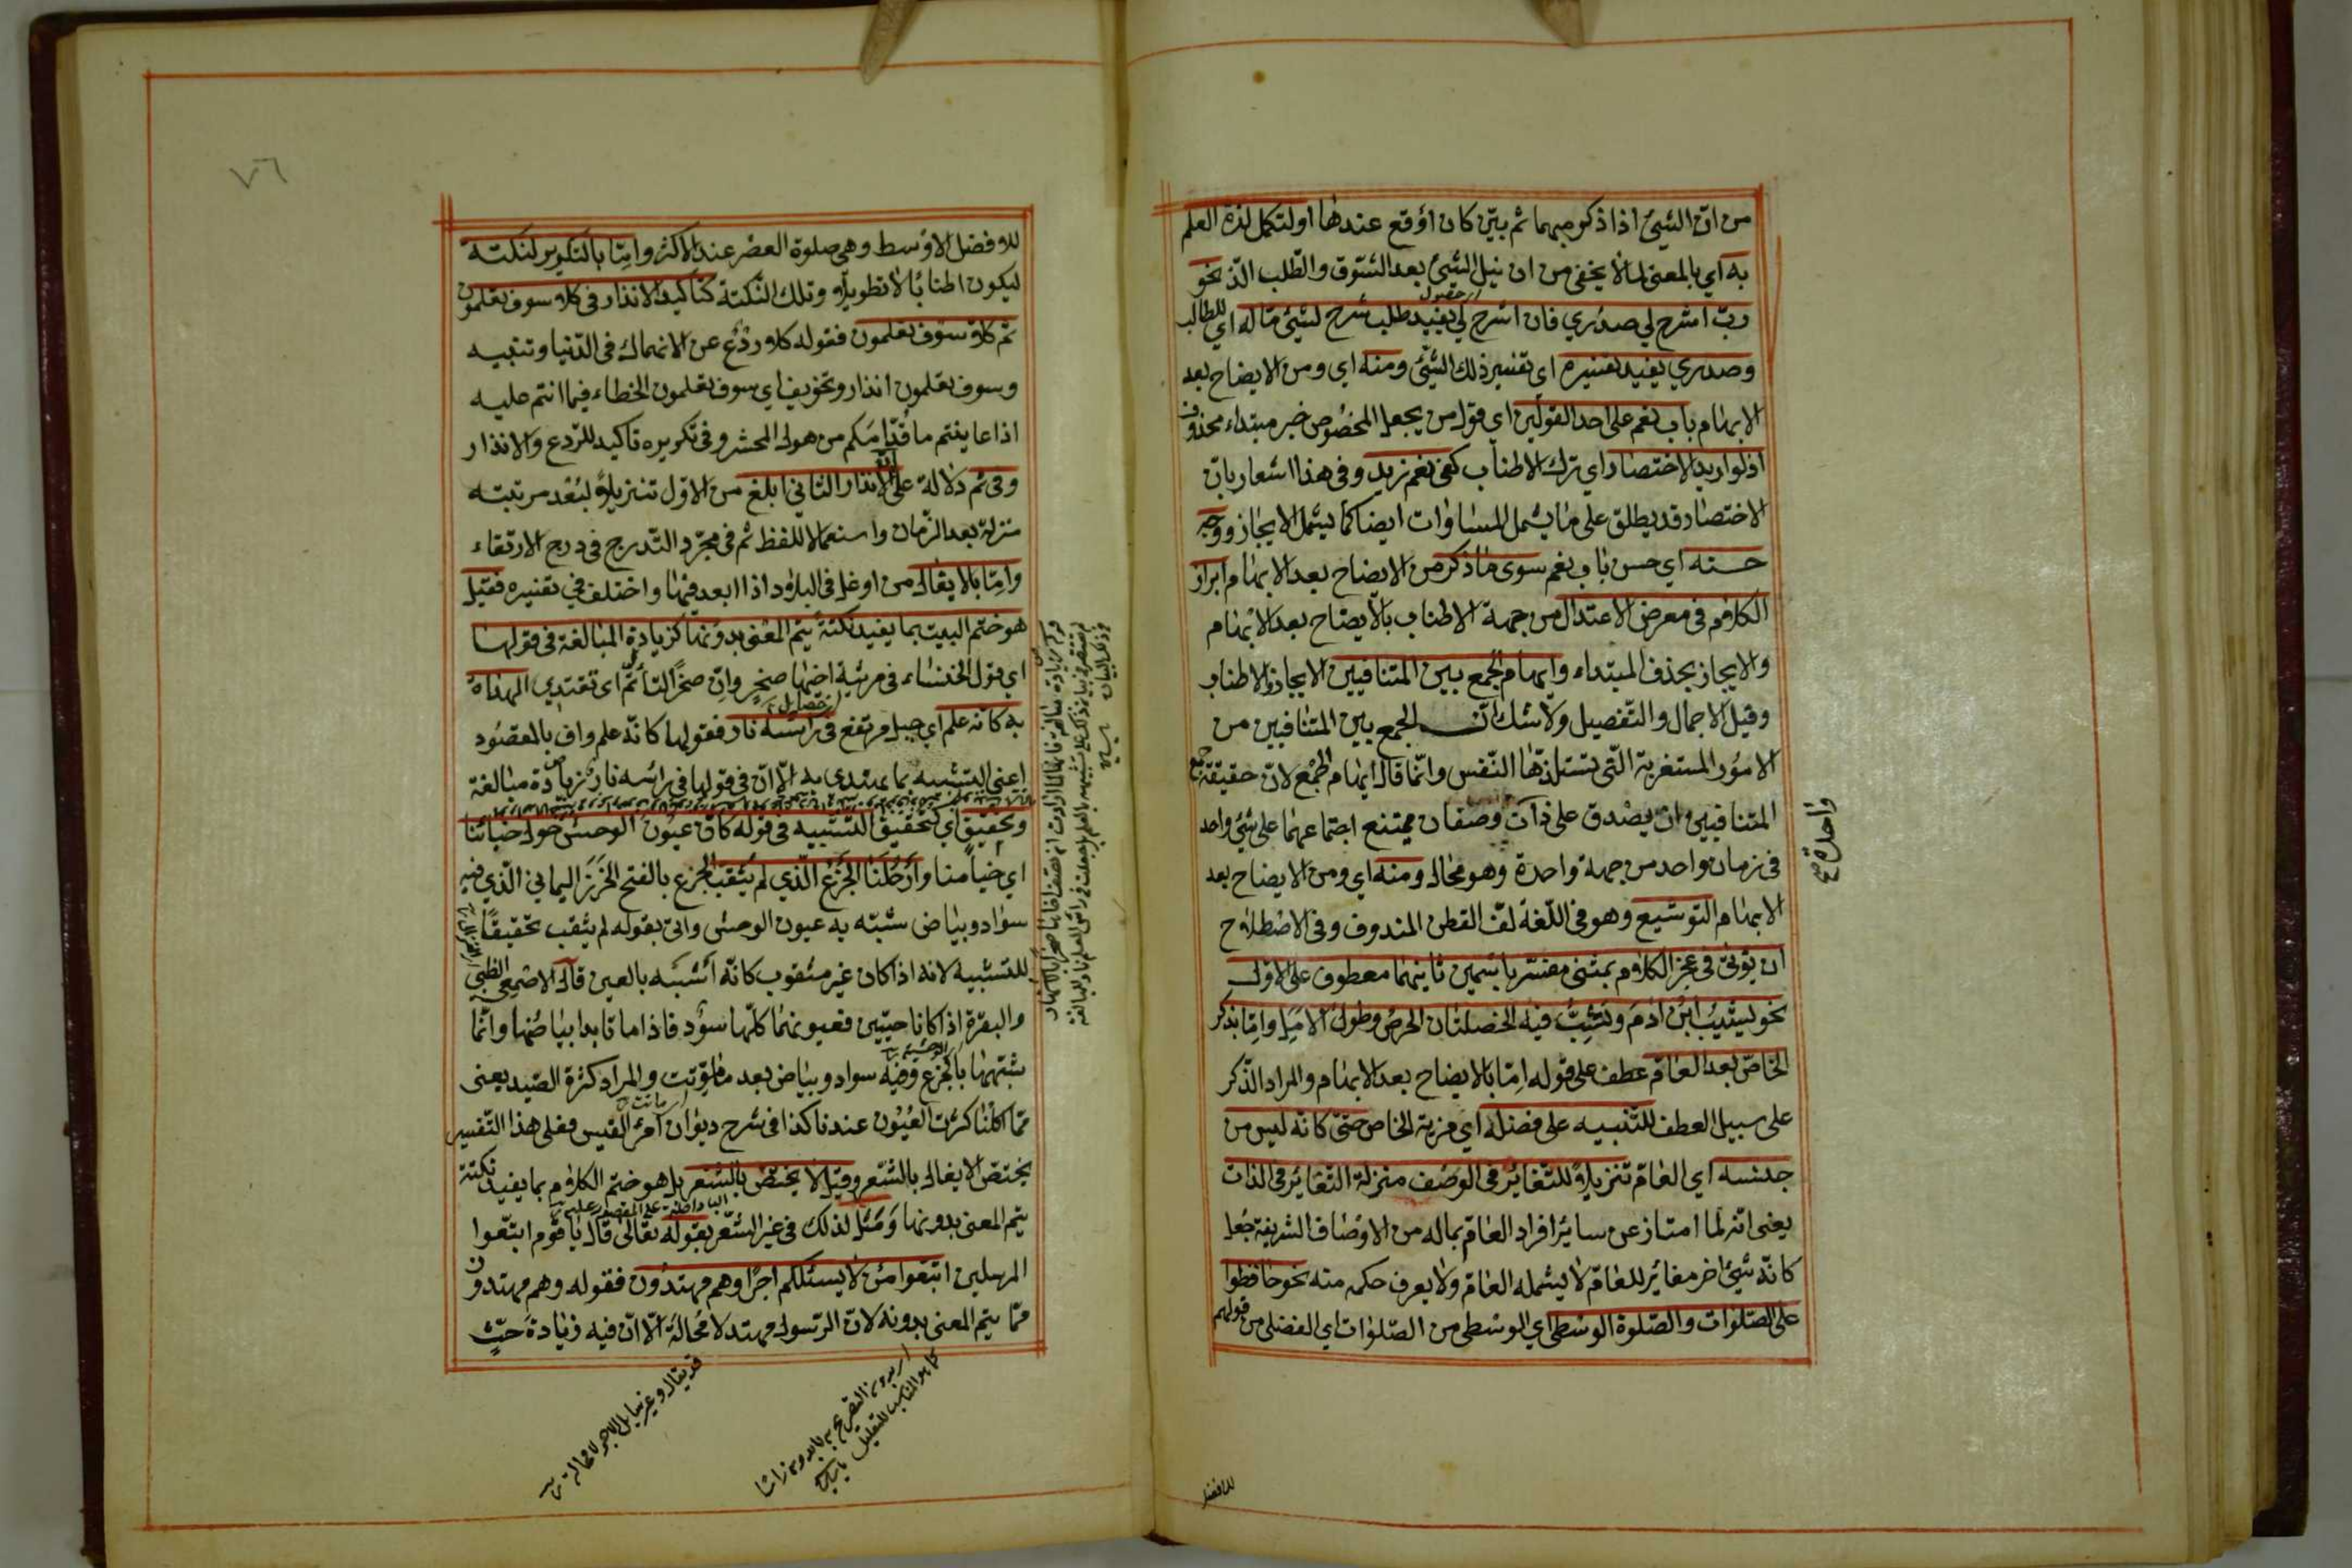 من انّ الشيئ اذا ذكر مبهما ثم بيّن كان اوقع عندها او لتكمل لذة العلم
به اي بالمعنى لما لا يخفى من ان نيل الشيئ بعد الشوق والطلب الذ نحو
ربّ اشرح لي صدري فان اشرح لي يفيد طلب شرح لشيئ ما له اي للطالب
وصدري يفيد تفسيره اي تفسير ذلك الشيئ ومنه اي ومن الايضاح بعد
الابهام باب نعم على احد القولين اي قول من يجعل المخصوص خبر مبتداء محذوف
اذ لو اريد الاختصار اي ترك الاطناب كفى نعم زيد وفى هذا اشعار بان
الاختصار قد يطلق على ما يشمل المساوات ايضا كما يشمل الايجاز ووجه
حسنه اي حسن باب نعم سوى ما ذكر من الايضاح بعد الابهام ابراز
الكلام فى معرض الاعتدال من جهة الاطناب بالايضاح بعد الابهام
والايجاز بحذف المبتداء وايهام الجمع بين المتنافيين الايجاز والاطناب
وقيل الاجمال والتفصيل ولا شك انّ الجمع بين المتنافيين من
الامور المستغربة التى تستلذها النّفس وانّما قال ايهام الجمع لانّ حقيقة جمع
المتنافيين ان يصدق على ذات وصفان يمتنع اجتماعهما على شيئ واحد
فى زمان واحد من جهة واحدة وهو محال ومنه اي ومن الايضاح بعد
الابهام التوشيع وهو فى اللّغة لفّ القطن المندوف وفى الاصطلاح
ان يؤتى فى عجز الكلام بمثنى مفسّر باسمين ثانيهما معطوف على الاول
نحو يشيب ابن ادم ويشبّ فيه الخصلتان الحرص وطول الامل وامّا بذكر
الخاصّ بعد العامّ عطف على قوله امّا بالايضاح بعد الابهام والمراد الذّكر
على سبيل العطف للتنبيه على فضله اي مزية الخاص حتى كانّه ليس من
جنسه اي العام تنزيلاً للتغاير فى الوصف منزلة التغاير فى الذات
يعنى انّه لما امتاز عن سائر افراد العام بماله من الاوصاف الشريفة جعل
كانّه شيئ اخر مغائر للعام لا يشمله العام ولا يعرف حكمه منه نحو حافظوا
على الصّلوات والصّلوة الوسطى اي الوسطى من الصّلوات اي الفضلى من قولهم
واحدة صح
للافضل
٧٦
للافضل الاوسط وهى صلوة العصر عند الاكثر وامّا بالتكرير لنكتة
ليكون اطنابًا لا تطويلا وتلك النكتة كتاكيد الانذار فى كلا سوف تعلمون
ثم كلا سوف تعلمون فقوله كلا ردع عن الانهماك فى الدّنيا وتنبيه
وسوف تعلمون انذار وتخويف اي سوف تعلمون الخطاء فيما انتم عليه
اذا عاينتم ما قدّامكم من هول المحشر وفى تكريره تاكيد للرّدع والانذار
وفى ثم دلالة على انّ الانذار الثانى ابلغ من الاوّل تنزيلاً لبعد مرتبته
منزلة بعد الزّمان واستعمالا للفظ ثم فى مجرّد التّدرج فى درج الارتقاء
وامّا بالايغال من اوغل فى البلاد اذا ابعد فيها واختلف فى تفسيره فقيل
هو ختم البيت بما يفيد نكتة يتم المعنى بدونها كزيادة المبالغة فى قولها
اي قول الخنساء فى مرثية اخيها صخر وانّ صخرًا لتأتمّ اى تقتدي الهداة
به كانّه علم اي جبل مرتفع فى راسه نار فقولها كانّه علم واف بالمقصود
اعنى التشبيه بما يهتدى به الّا انّ فى قولها فى راسه نار زيادة مبالغة
وتحقيق اي كتحقيق التشبيه فى قوله كانّ عيون الوحش حول خبائنا
اي خيامنا وارحلنا الجزع الّذي لم يثقب الجزع بالفتح الخرز اليمانى الّذي فيه
سواد وبياض شبّه به عيون الوحش واتى بقوله لم يثقب تحقيقًا
للتشبيه لانه اذا كان غير مثقوب كانّه اشبه بالعين قال الاصمعى الظبى
والبقرة اذا كانا حيّين فعيونهما كلّها سود فاذا ماتا بدا بياضها وانّما
شبّهها بالجزع وفيه سواد وبياض بعد ما موّتت والمراد كثرة الصّيد يعنى
ممّا اكلنا كثرت العيون عندنا كذا فى شرح ديوان امرئ القيس فعلى هذا التّفسير
يختصّ الايغال بالشّعر وقيل لا يختصّ بالشعر بل هو ختم الكلام بما يفيد نكتة
يتم المعنى بدونها ومثّل لذلك فى غير الشّعر بقوله تعالى قال يا قوم اتبعوا
المرسلين اتبعوا من لا يسئلكم اجرًا وهم مهتدون فقوله وهم مهتدون
ممّا يتم المعنى بدونه لانّ الرّسول مهتد لا محالة الّا انّ فيه زيادة حثّ